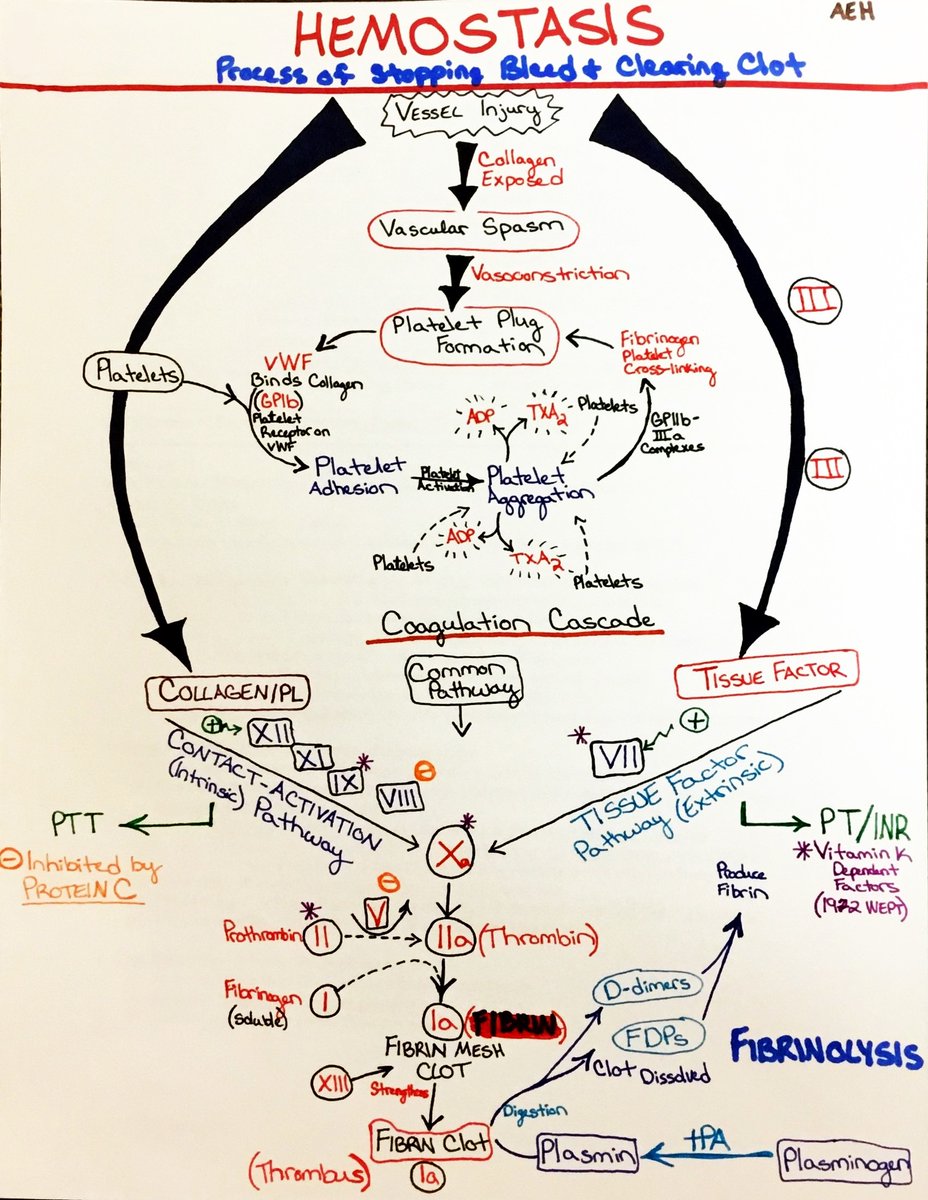 AEH
HEMOSTASIS
Process of Stopping Bleed + Clearing Clot
VESSEL Injury
Collagen
Exposed
Vascular Spasm
Vasoconstriction
III
Platelet Plug
Formation
Fibrinogen
Platelet
Cross-linking
VWF
Binds Collagen
(GPIb)
Platelet
Receptor on
VWF
Platelets
ADP
TXA2
Platelets
GPIIb-
IIIa
Complexes
III
Platelet
Adhesion
Platelet
Activation
Platelet
Aggregation
ADP
TXA2
Platelets
Platelets
Coagulation Cascade
Common
Pathway
COLLAGEN/PL
TISSUE FACTOR
+
XII
XI
IX *
VIII
−
CONTACT-ACTIVATION
(Intrinsic) Pathway
+
* VII
TISSUE Factor
Pathway (Extrinsic)
PTT
PT/INR
− Inhibited by
PROTEIN C
* Vitamin K
Dependent
Factors
(1972 WEPT)
*
Xa
−
V
*
Prothrombin II
IIa (Thrombin)
Fibrinogen I
(soluble)
Ia (FIBRIN)
FIBRIN MESH
CLOT
XIII
Strengthens
FIBRIN Clot
(Thrombus) Ia
Produce
Fibrin
D-dimers
FDPs
Clot Dissolved
FIBRINOLYSIS
Digestion
Plasmin
tPA
Plasminogen